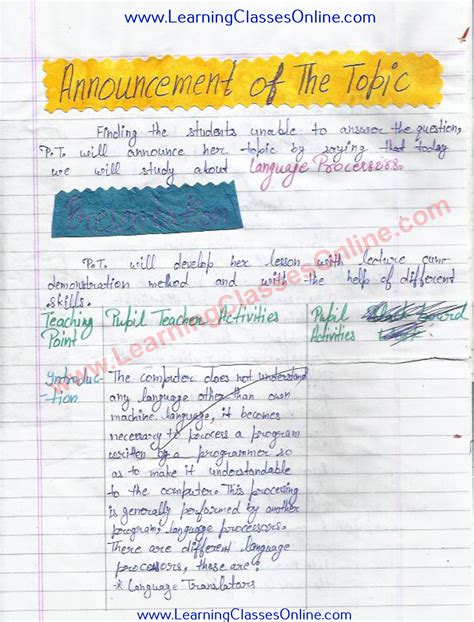 www.LearningClassesOnline.com
Announcement of The Topic
Finding the students unable to answer the question,
P.T. will announce her topic by saying that today
we will study about Language Processors.
Presentation
P.T. will develop her lesson with lecture cum
demonstration method and with the help of different
skills.
Teaching Point
Pupil Teacher Activities
Pupil Activities
www.LearningClassesOnline.com
Introduc-
tion
The computer does not understand
any language other than own
machine language, it becomes
necessary to process a program
written by a programmer so
as to make it understandable
to the computer. This processing
is generally performed by another
program, language processors.
There are different language
processors, these are:
* Language Translators
www.LearningClassesOnline.com